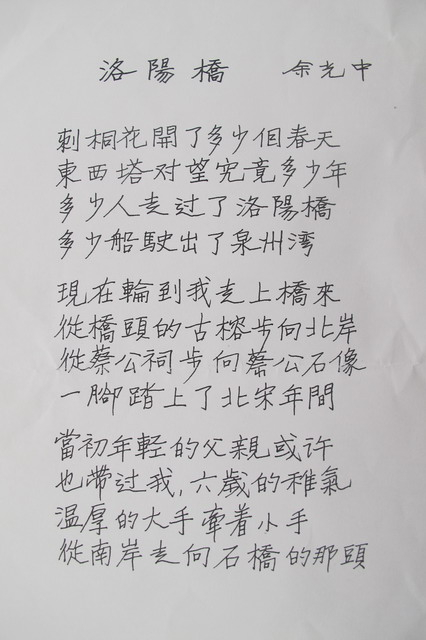 洛陽橋 余光中
刺桐花開了多少個春天
東西塔对望究竟多少年
多少人走过了洛陽橋
多少船駛出了泉州湾
現在輪到我走上橋來
從橋頭的古榕步向北岸
從蔡公祠步向蔡公石像
一腳踏上了北宋年間
當初年轻的父親或许
也带过我,六歲的稚氣
温厚的大手牽着小手
從南岸走向石橋的那頭